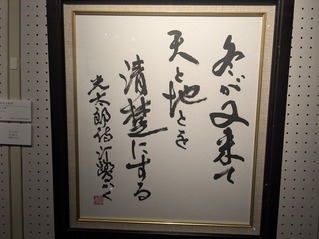 冬が又来て
天と地とを
清楚にする
光太郎詩